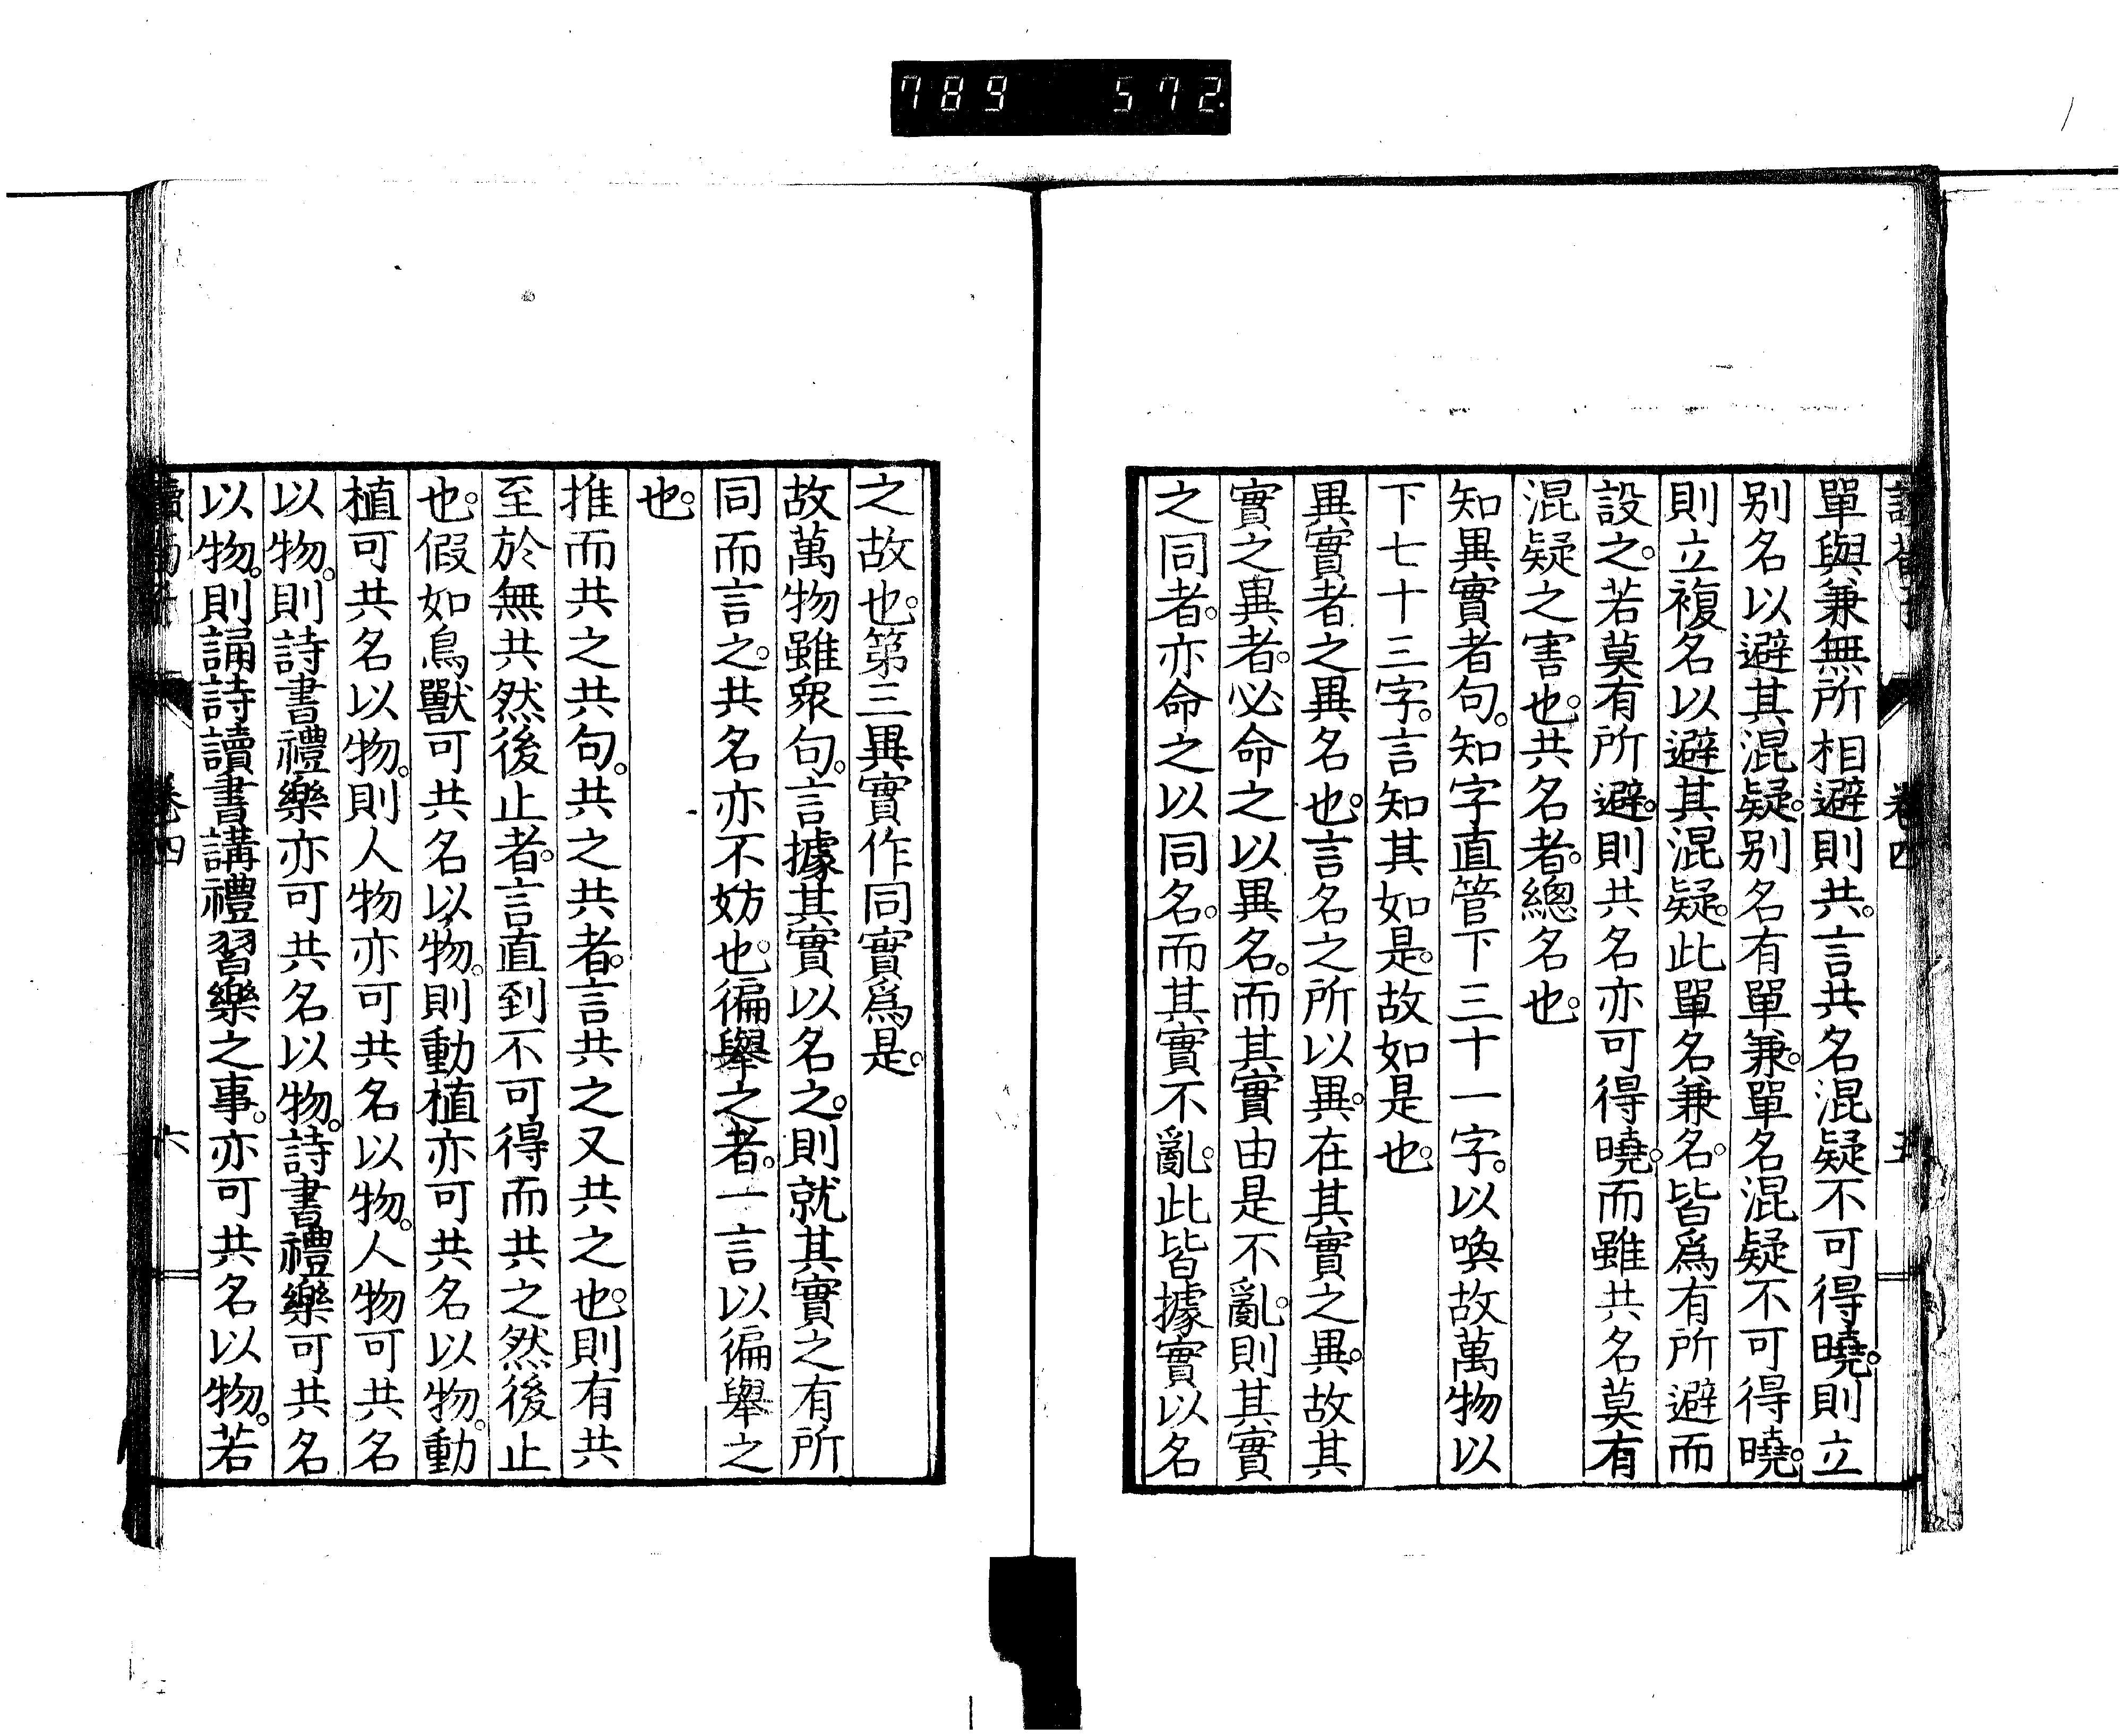 789 572.
讀荀子 卷四 五
單與兼無所相避則共。言共名混疑不可得曉。則立
别名以避其混疑。别名有單兼。單名混疑不可得曉。
則立複名以避其混疑。此單名兼名。皆爲有所避而
設之。若莫有所避。則共名亦可得曉。而雖共名莫有
混疑之害也。共名者。總名也。
知異實者句。知字直管下三十一字。以喚故萬物以
下七十三字。言知其如是。故如是也。
異實者之異名也。言名之所以異。在其實之異。故其
實之異者。必命之以異名。而其實由是不亂。則其實
之同者。亦命之以同名。而其實不亂。此皆據實以名
之故也。第三異實作同實爲是。
故萬物雖衆句。言據其實以名之。則就其實之有所
同而言之。共名亦不妨也。徧擧之者。一言以徧擧之
也。
推而共之共句。共之共者。言共之又共之也。則有共
至於無共然後止者。言直到不可得而共之然後止
也。假如鳥獸可共名以物。則動植亦可共名以物。動
植可共名以物。則人物亦可共名以物。人物可共名
以物。則詩書禮樂亦可共名以物。詩書禮樂可共名
以物。則誦詩讀書講禮習樂之事。亦可共名以物。若
讀荀子 卷四 六